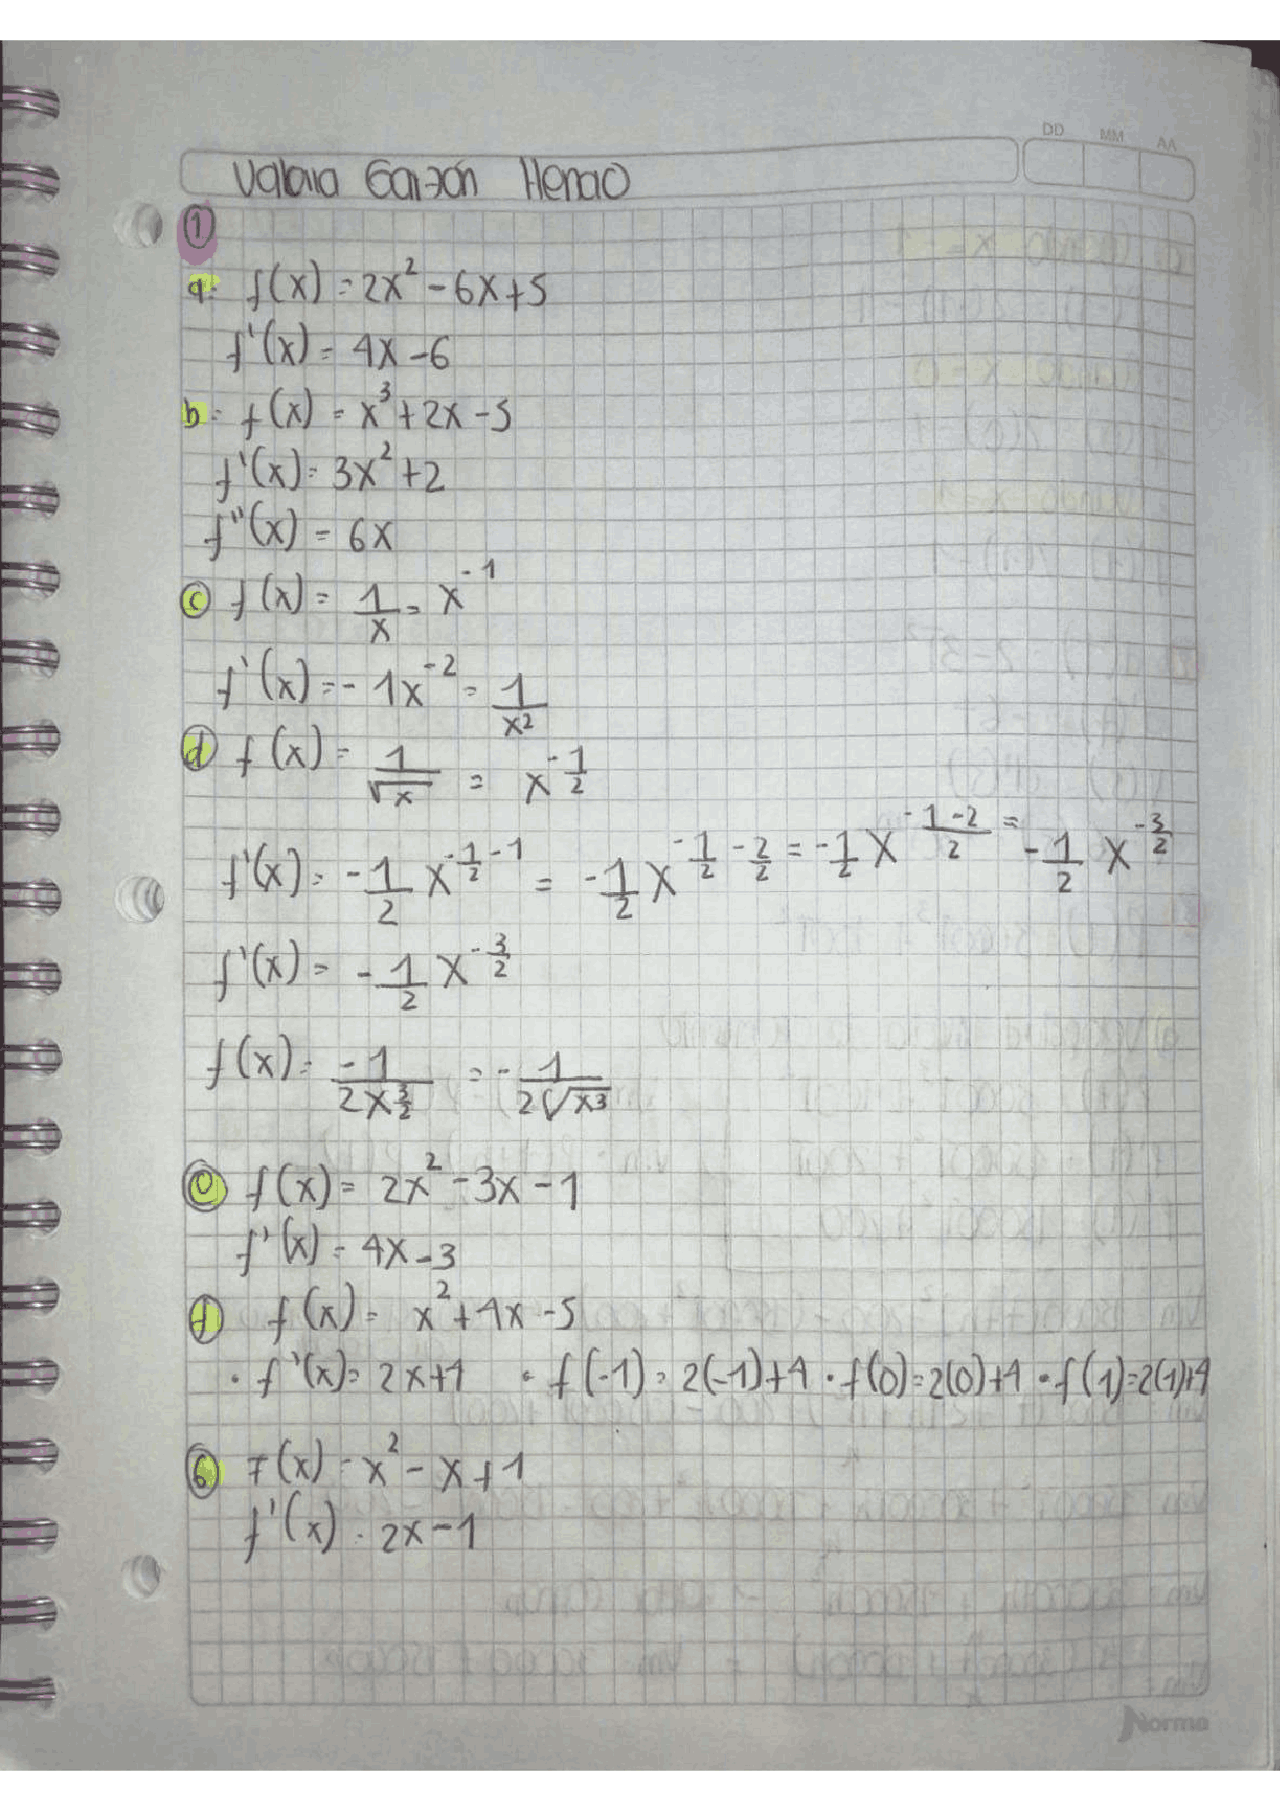 DD MM AA
Valeria Garzón Henao
1
a- f(x) = 2x² - 6x + 5
f'(x) = 4x - 6
b- f(x) = x³ + 2x - 5
f'(x) = 3x² + 2
f''(x) = 6x
c f(x) = 1/x = x⁻¹
f'(x) = - 1x⁻² = 1/x²
d f(x) = 1/√x = x^(-1/2)
f'(x) = -1/2 x^(-1/2 - 1) = -1/2 x^(-1/2 - 2/2) = -1/2 x^((-1-2)/2) = -1/2 x^(-3/2)
f'(x) = -1/2 x^(-3/2)
f(x) = -1/(2x^(3/2)) = - 1/(2√x³)
e f(x) = 2x² - 3x - 1
f'(x) = 4x - 3
f f(x) = x² + 4x - 5
· f'(x) = 2x+4 · f(-1) = 2(-1)+4 · f(0) = 2(0)+4 · f(1) = 2(1)+4
6 f(x) = x² - x + 1
f'(x) = 2x - 1
Norma